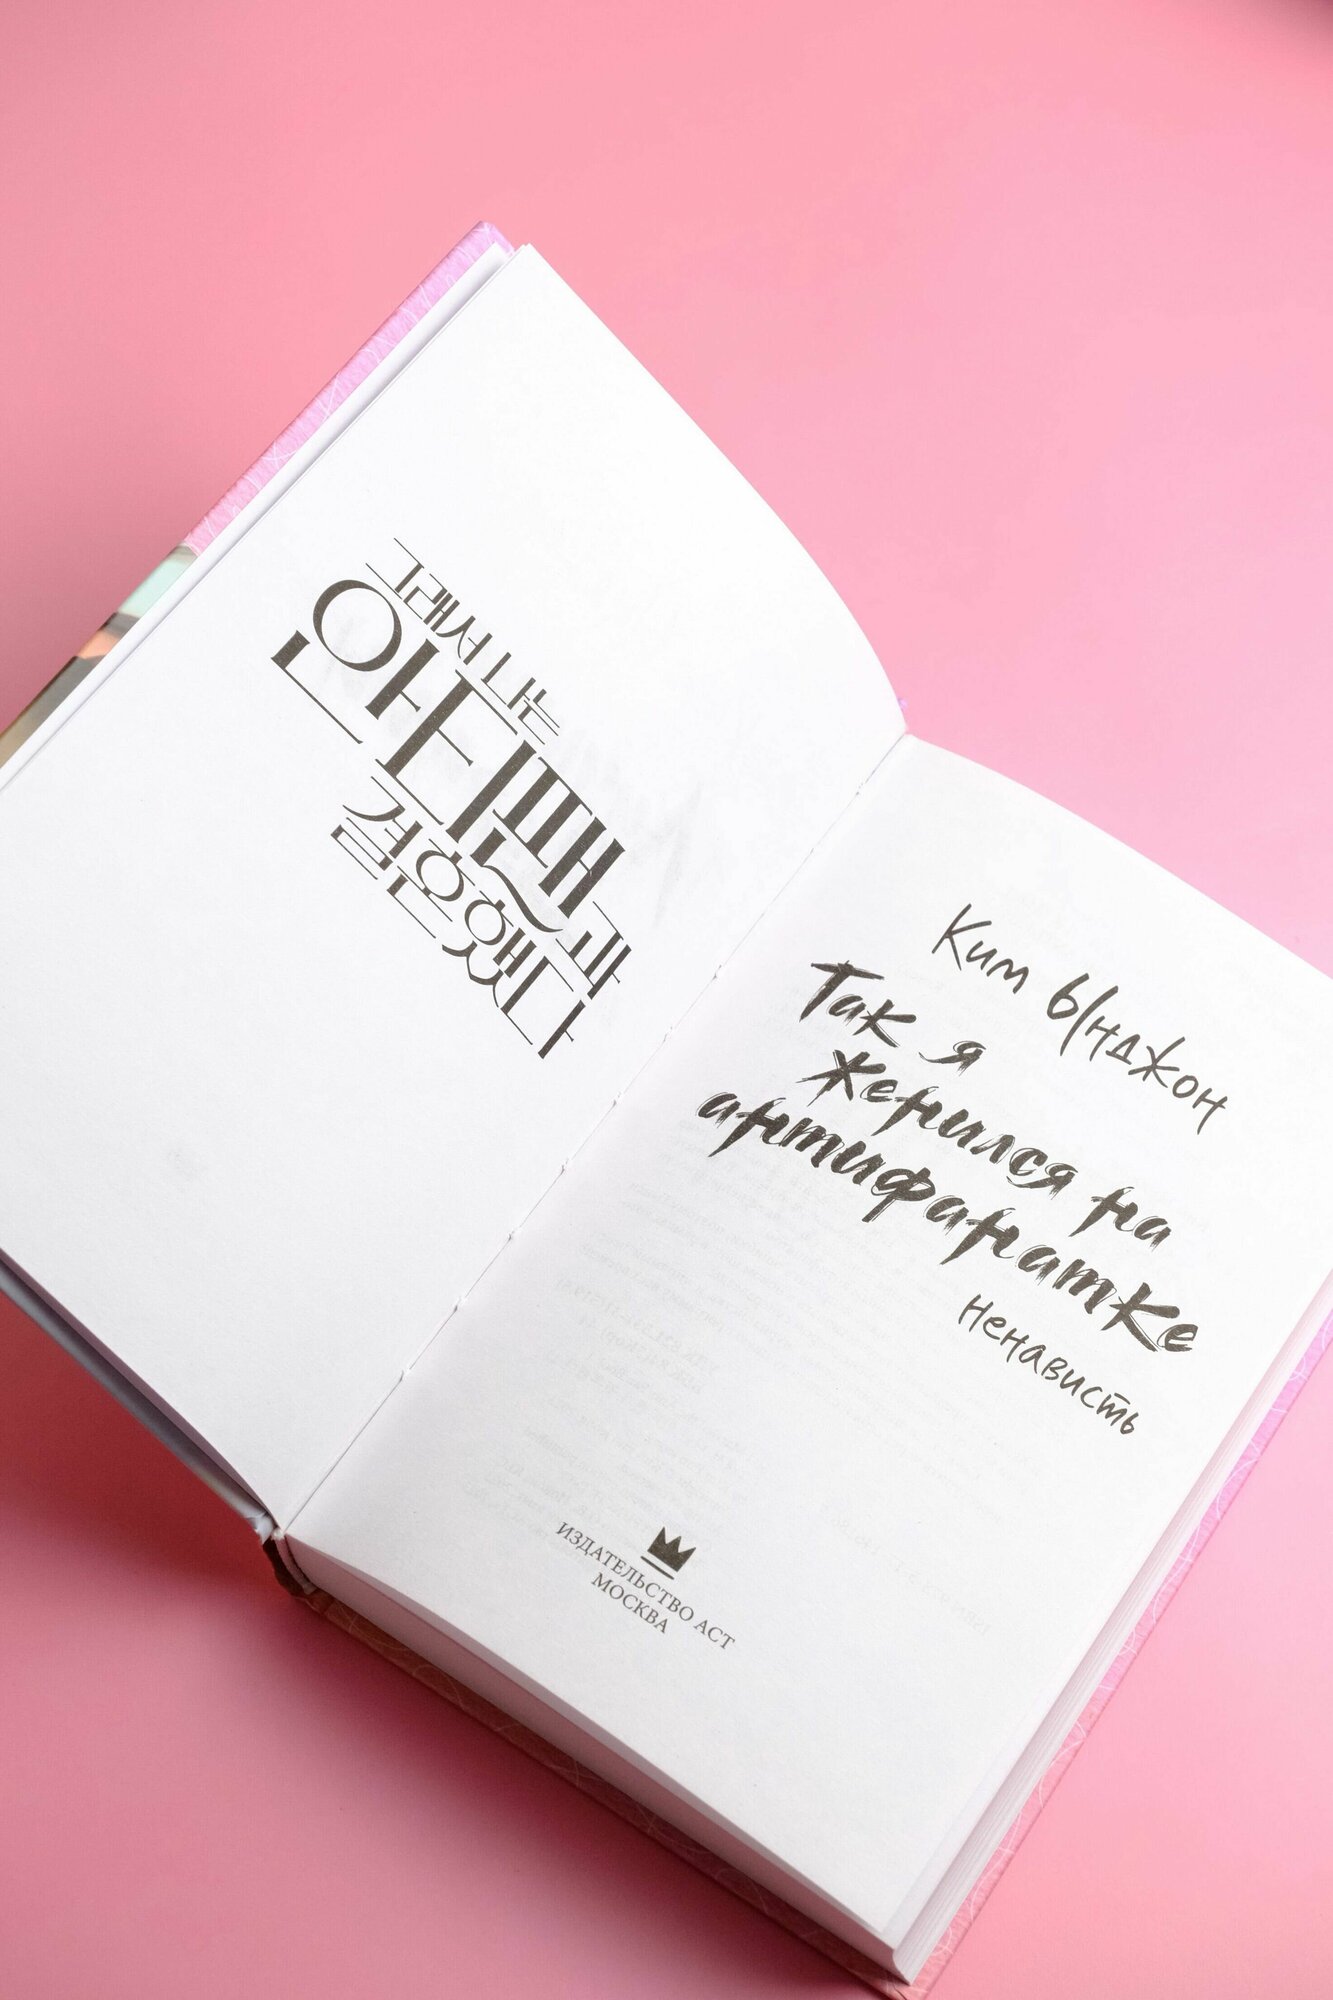 그래서 나는
안티팬과
결혼했다
Ким Ынджон
Так я
женился на
антифанатке
ненависть
ИЗДАТЕЛЬСТВО АСТ
МОСКВА